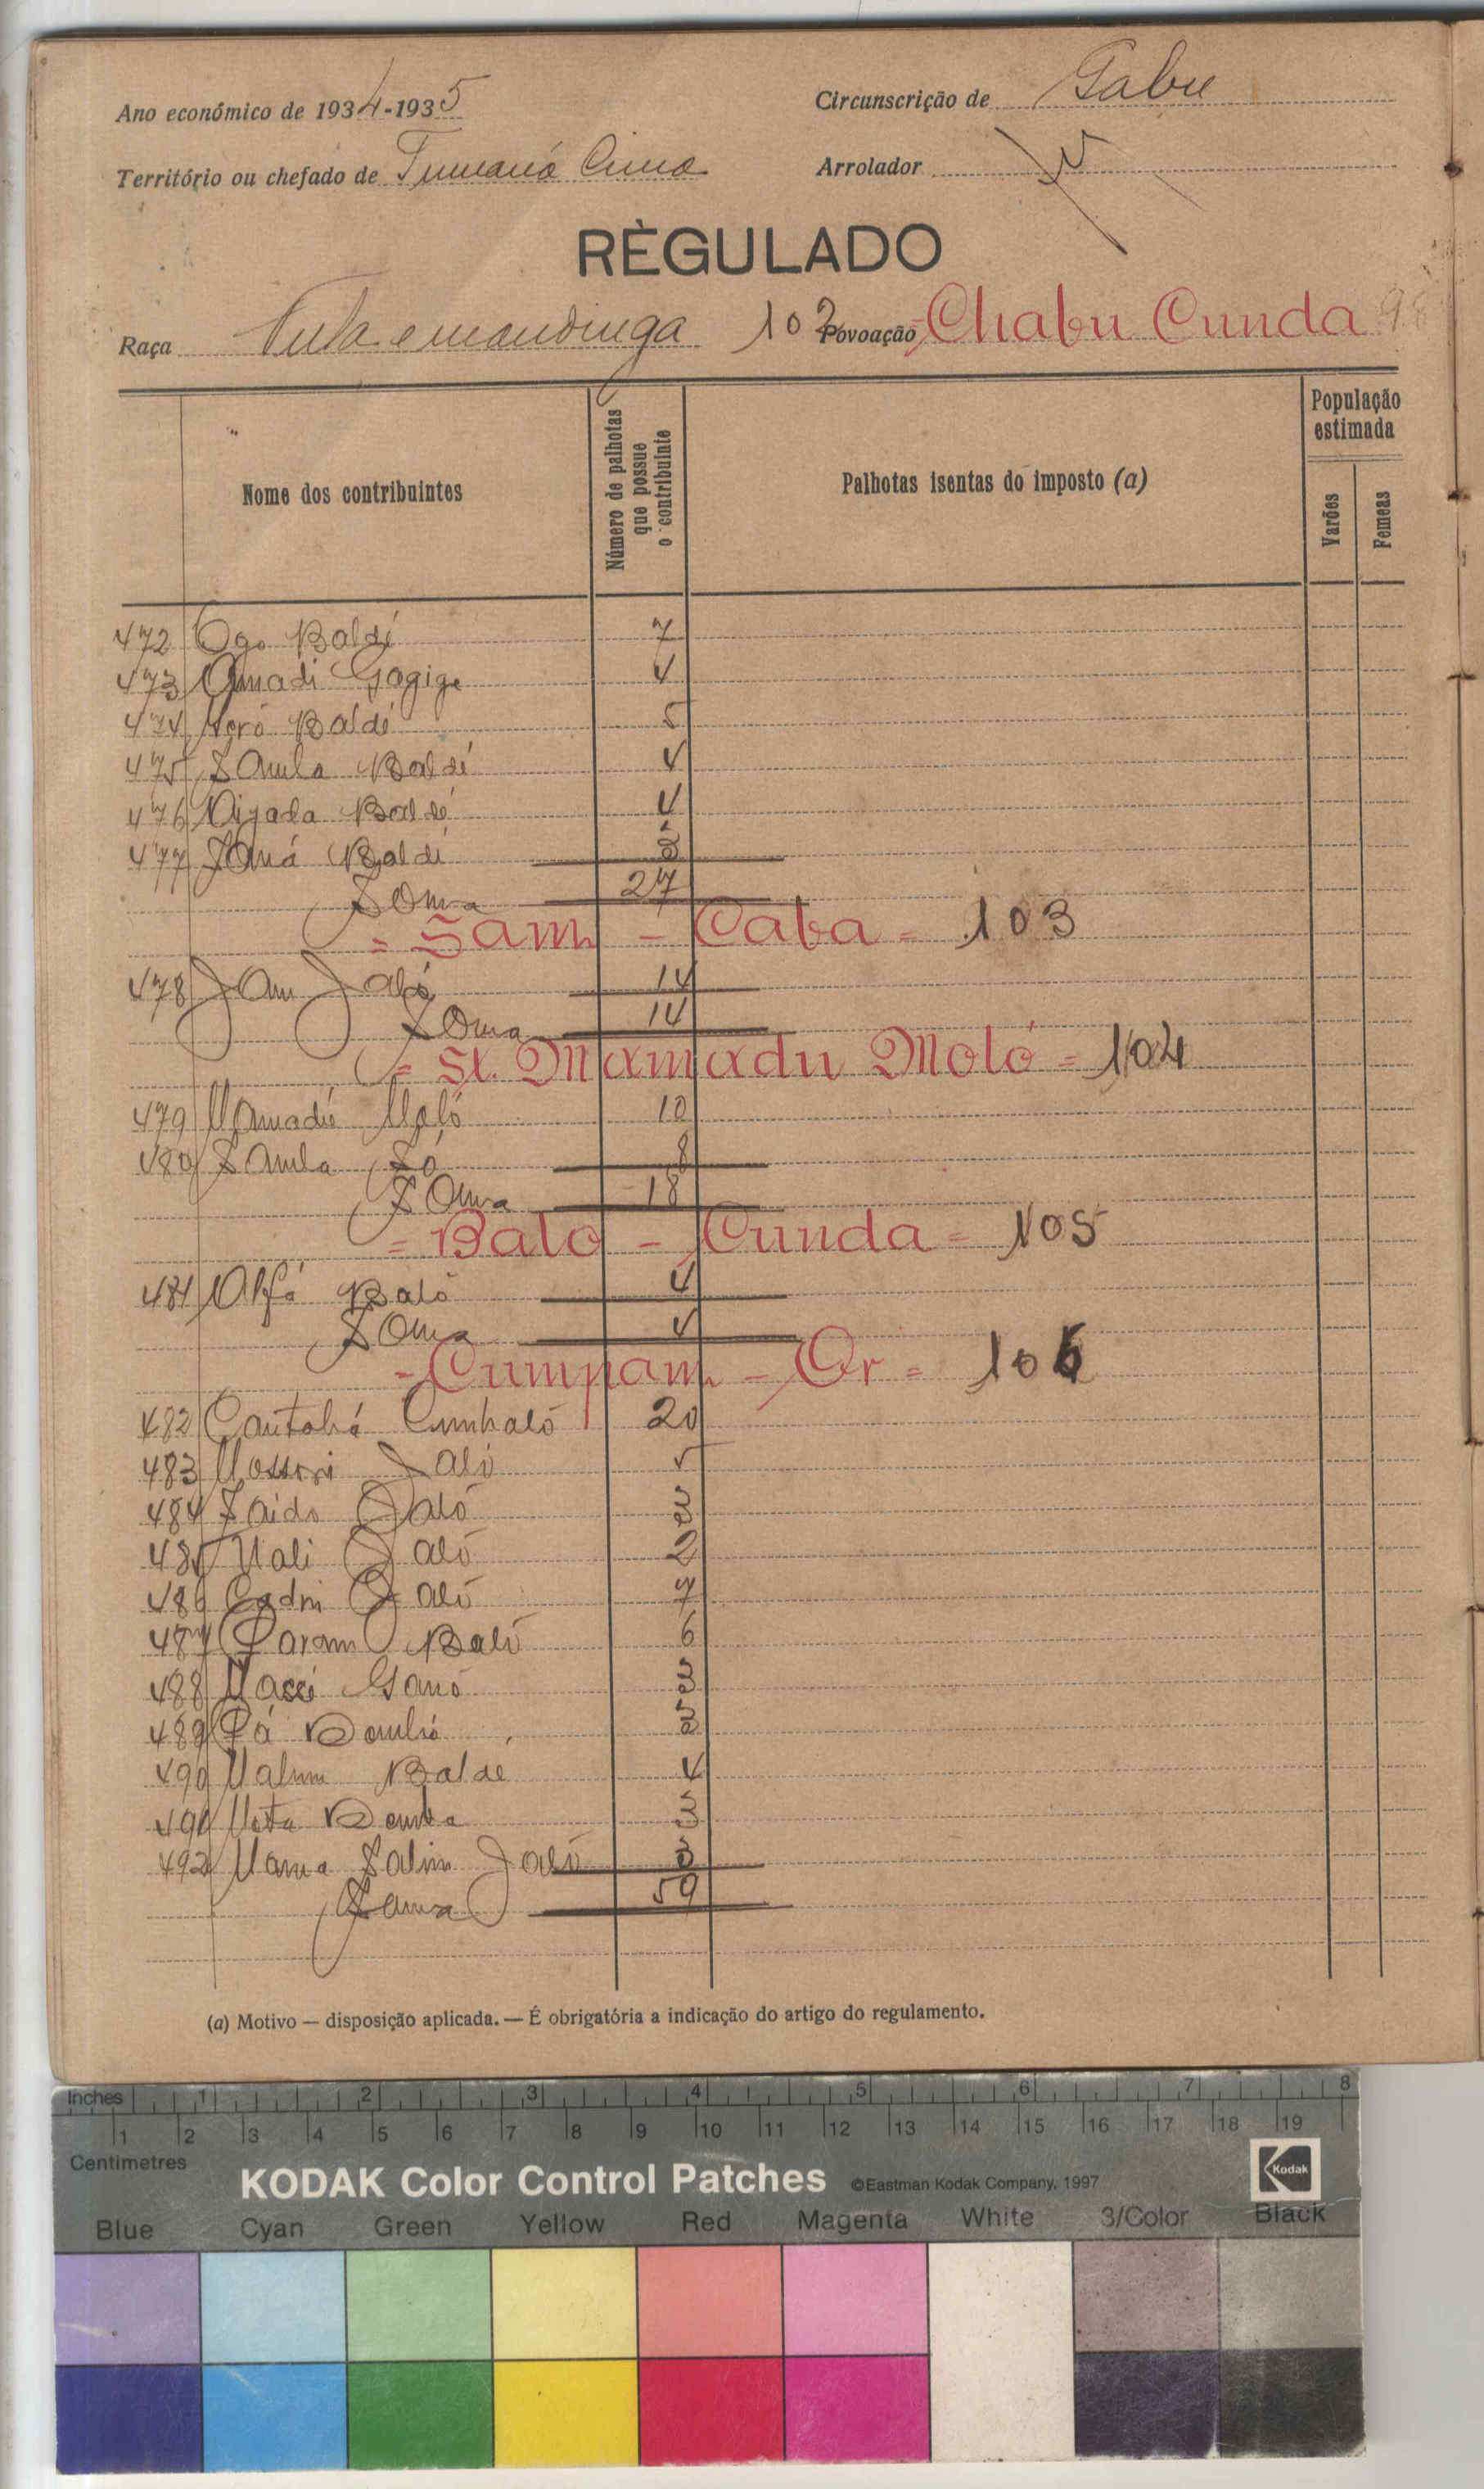 Ano económico de 1934-1935
Circunscrição de Gabu
Território ou chefado de Tumaná Cima
Arrolador
RÈGULADO
Raça Fula e mandinga 102 Povoação Chabu Cunda 98
Nome dos contribuintes
Número de palhotas que possue o contribuinte
Palhotas isentas do imposto (a)
População estimada
Varões
Femeas
472 Ogo Baldé 7
473 Amadi Gagige 4
474 Iéró Baldé 5
475 Samba Baldé 4
476 Baldé 4
477 Baldé 3
Soma 27
= Sam - Caba = 103
478 Jam Jaló 14
Soma 14
= St. Mamadu Moló = 104
479 Mamadú Moló 10
480 Samba Só 8
Soma 18
= Baló - Cunda = 105
481 Alfá Baló 4
Soma 4
- Cumpam - Or = 106
482 20
483 Jaló 5
484 Saido Jaló 3
485 Uali Jaló 2
486 Jaló 7
487 Param Baló 6
488 Ganó 3
489 Pá
490 Baldé 4
491 Demba 3
492 Jaló
Soma 59
(a) Motivo — disposição aplicada. — É obrigatória a indicação do artigo do regulamento.
Inches 1 2 3 4 5 6 7 8
1 2 3 4 5 6 7 8 9 10 11 12 13 14 15 16 17 18 19
Centimetres
KODAK Color Control Patches ©Eastman Kodak Company, 1997 Kodak
Blue Cyan Green Yellow Red Magenta White 3/Color Black